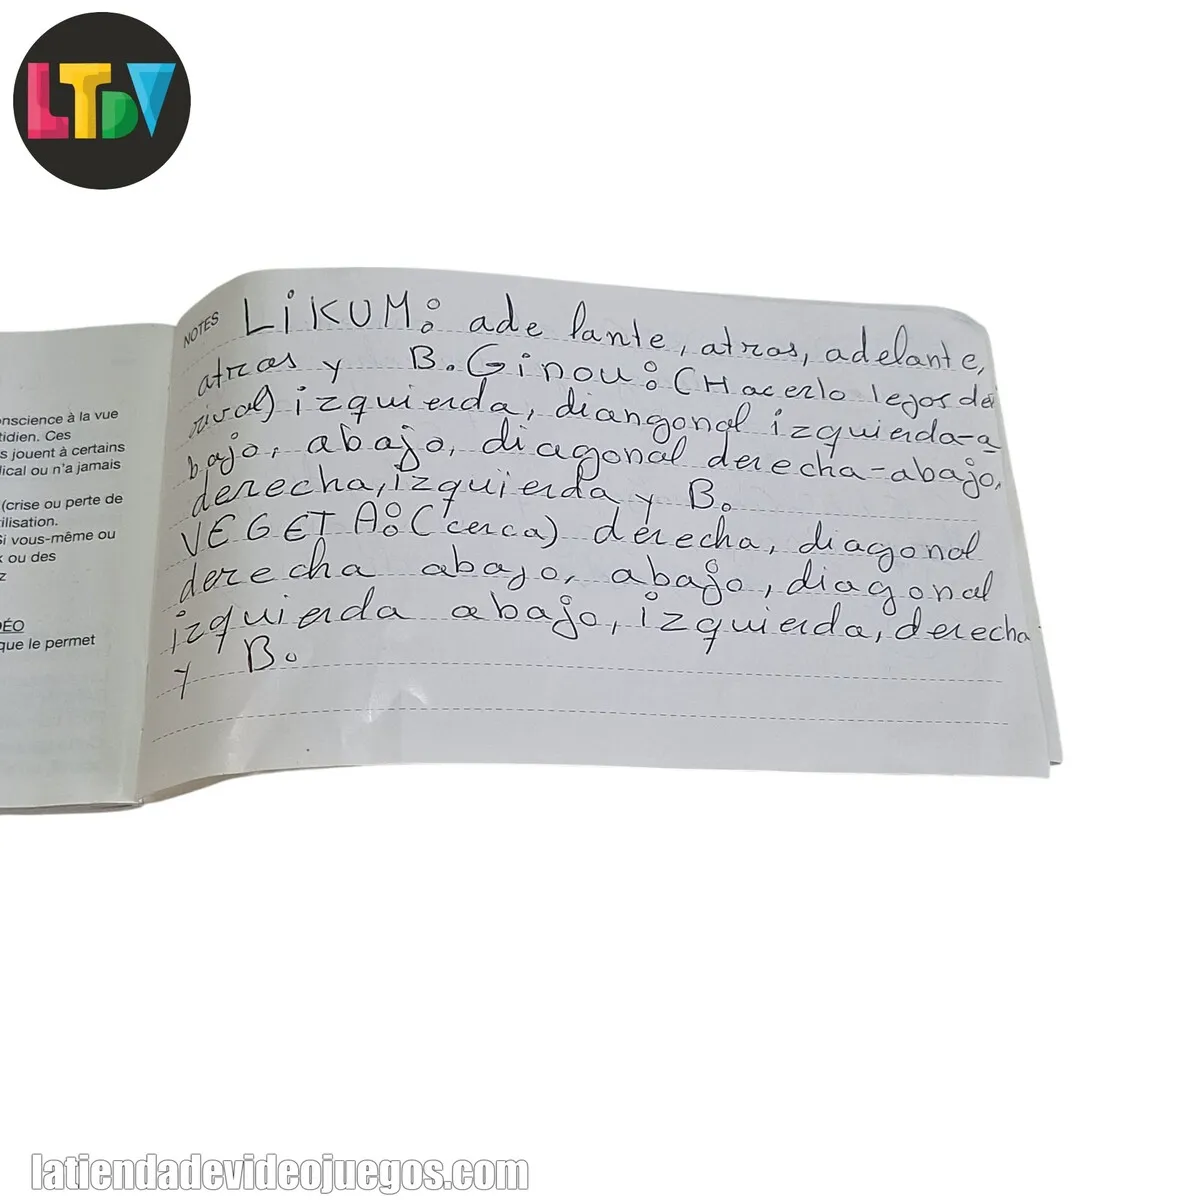 LTDV
NOTES
LiKUM: ade lante, atras, adelante,
atras y B. Ginou: (Hacerlo lejos del
rival) izquierda, diangonal izquierda-a
bajo, abajo, diagonal derecha-abajo,
derecha, izquierda y B.
VEGETA: (cerca) derecha, diagonal
derecha abajo, abajo, diagonal
izquierda abajo, izquierda, derecha
y B.
onscience à la vue
tidien. Ces
s jouent à certains
lical ou n'a jamais
(crise ou perte de
ilisation.
Si vous-même ou
x ou des
z
DÉO
que le permet
latiendadevideojuegos.com